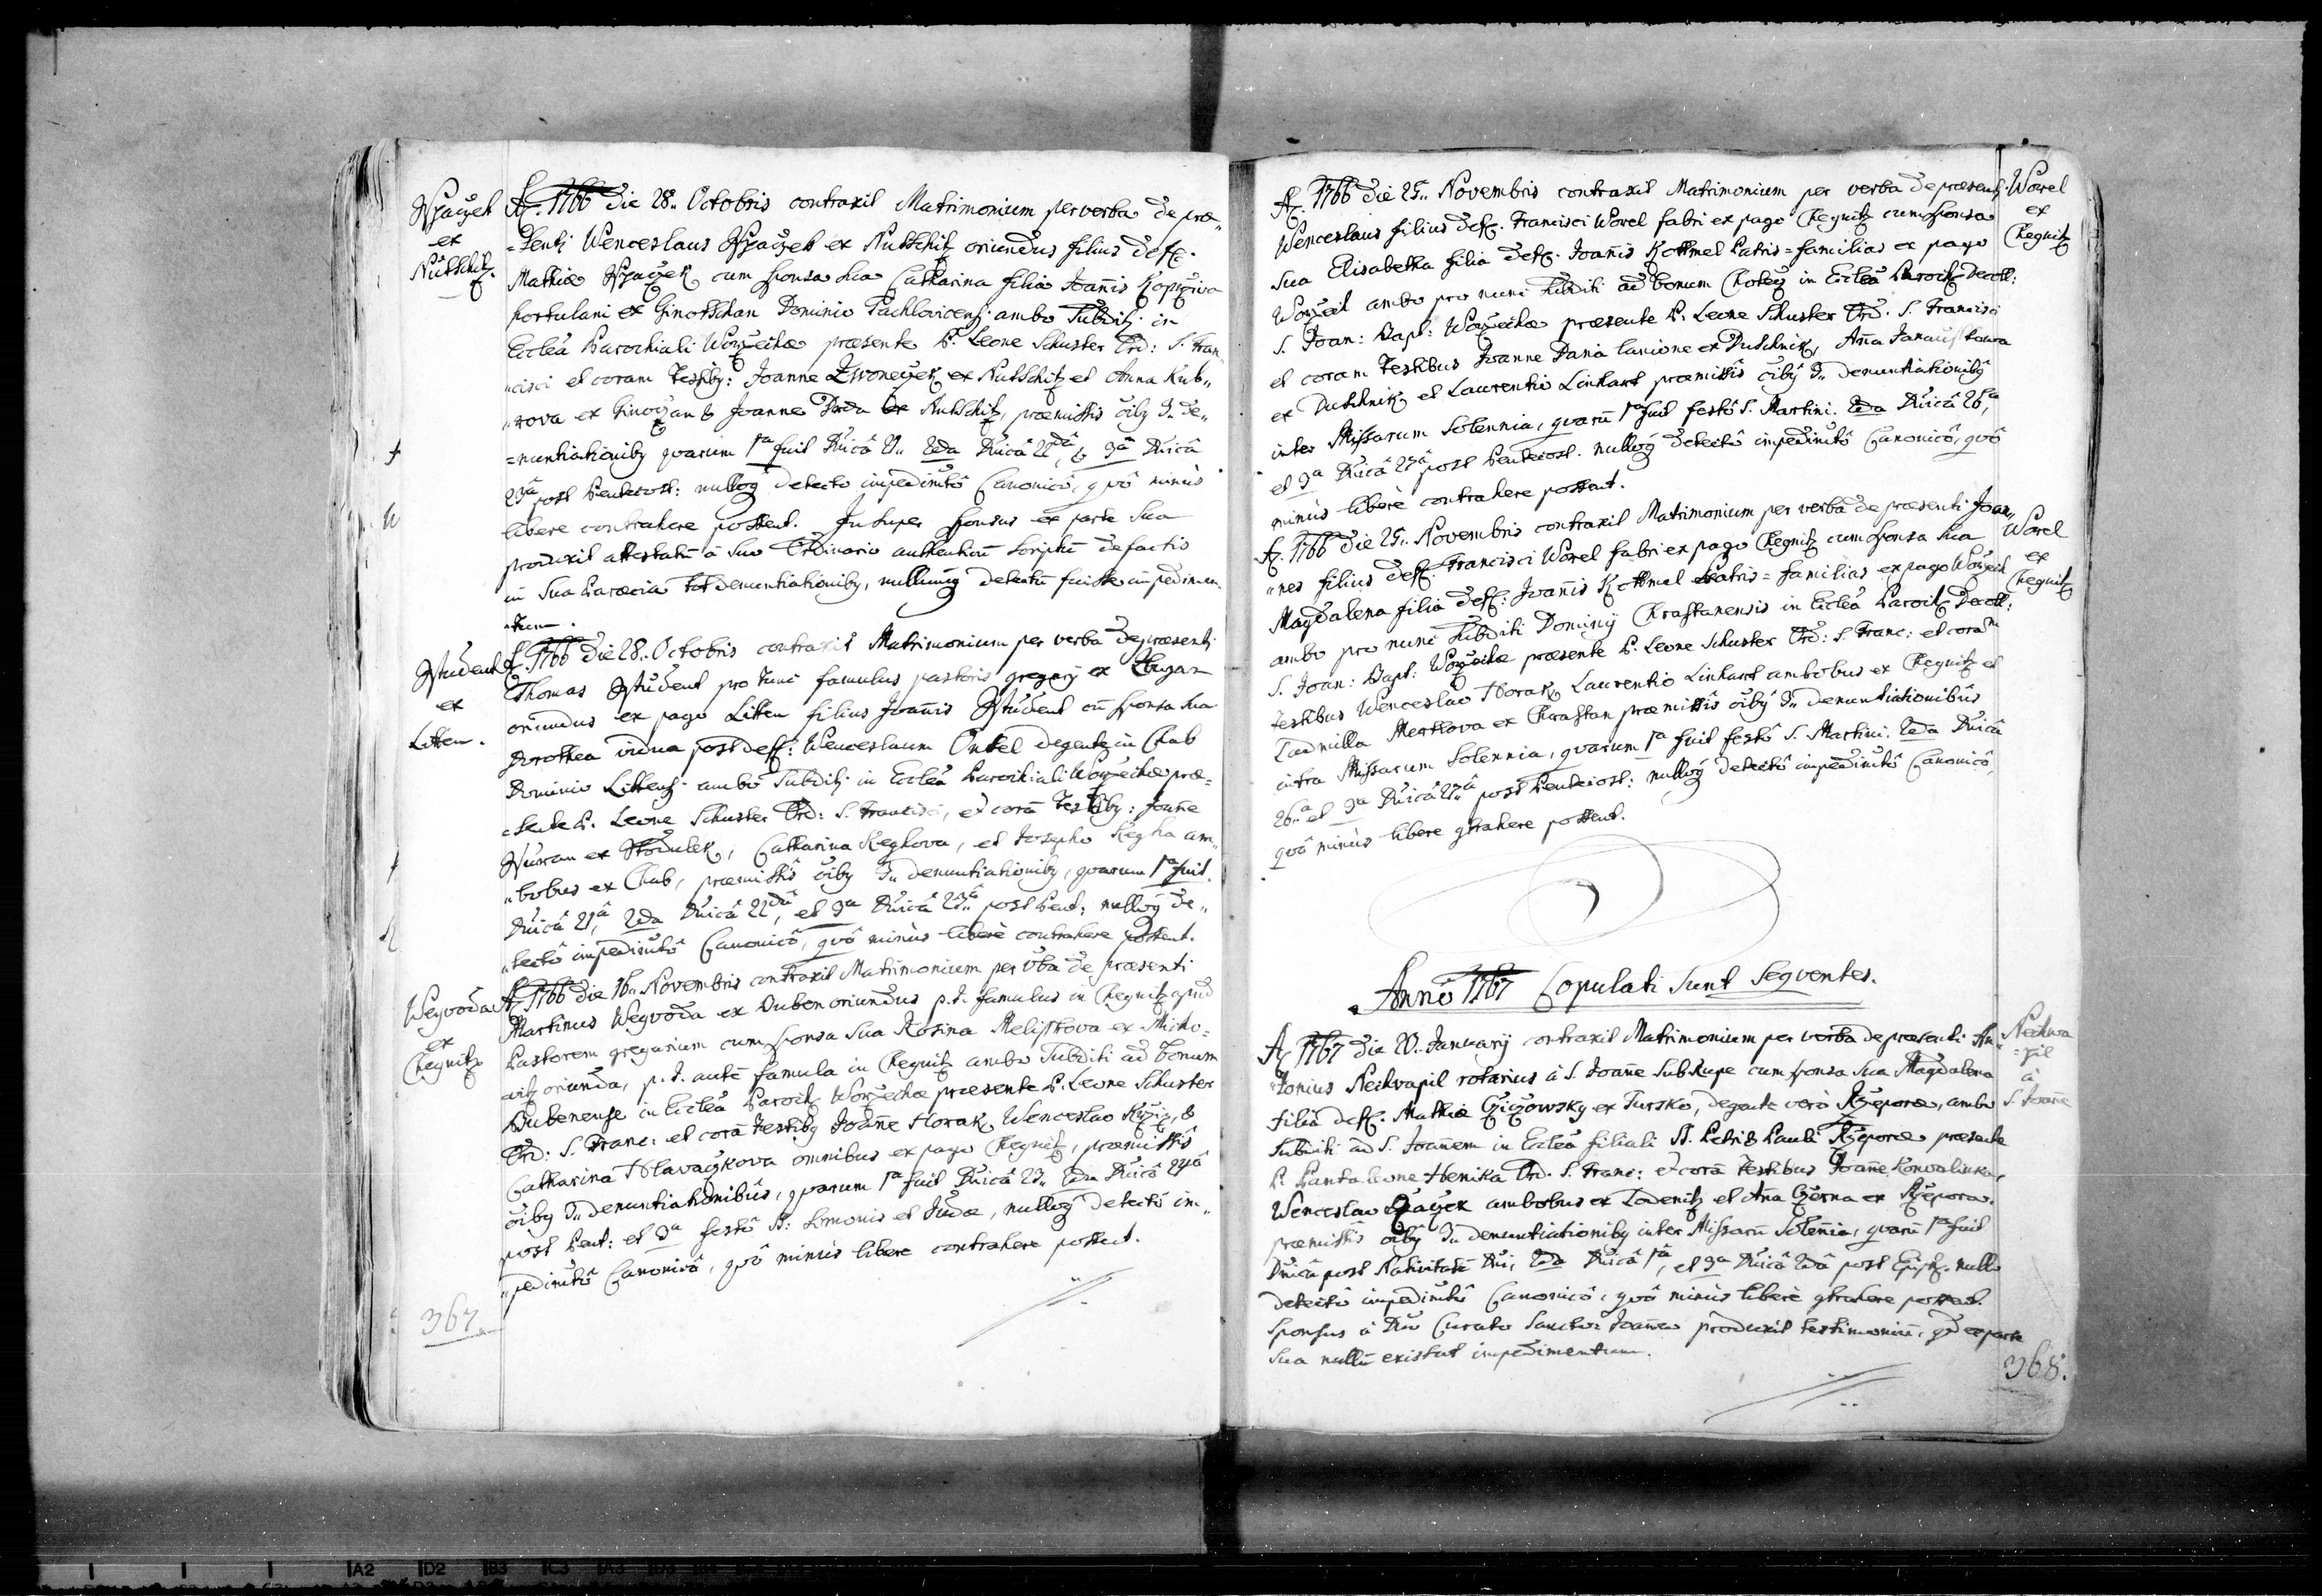 ex
Nutschitz.
A. 1766 die 28. Octobris contraxit Matrimonium per verba de præ=
=senti Wenceslaus ex Nutschitz oriundus filius deff.
Mathiæ cum sponsa sua Catharina filia Joañis Koprziva
portulani ex Ginotschan Dominio Tachlovicensi ambo Subditi in
Eccleâ Parochiali Worzechæ præsente P. Leone Schuster Ord: S. Fran=
"cisci et coram testiby: Joanne Zwoneczek ex Nutschitz et Anna Kub"
"rova ex Ginoczan & Joanne ex Nutschitz, præmissis õiby 3. de"
=nuntiationiby quarum 1a fuit Dñicâ 21. 2da Dñicâ 22dâ, & 3a Dñicâ
23â post Pentecost: nulloq detecto impedimtô Canonicô, quô minus
libere contrahere possent. Insuper sponsus ex parte sua
produxit attestatũ à suo Ordinario authenticũ scriptũ de factis
in sua Paræcia tot denuntiationiby, nullumq detectũ fuisse impedimen
"tum.
Student
ex
Litten.
A. 1766 die 28. Octobris contraxit Matrimonium per verba de præsenti
Thomas Student pro tunc famulus pastoris gregarij ex
oriundus ex pago Litten filius Joañis Student cũ sponsa sua
Dorothea vidua post deff: Wenceslaum degentis in Chub
Dominio Littensi ambo Subditi in Eccleâ Parochiali Worzechæ præ=
=sente P. Leone Schuster Ord: S. Francisci, et corã testiby: Joañe
ex Catharina Reghova, et Josepho Regha am"
"bobus ex Chub, præmissis õiby 3. denuntiationiby, quarum 1a fuit
Dñicâ 21â, 2da Dñicâ 22dâ, et 3a Dñicâ 23â post Pent: nulloq de"
"tectô impedimtô Canonicô, quô minùs liberè contrahere possent.
Weyvoda
ex
Chegnitz
A. 1766 die 16. Novembris contraxit Matrimonium per vba de præsenti
Martinus Weyvoda ex Duben oriundus p.t. famulus in Chegnitz apud
Pastorem gregarium cum sponsa sua Rosina Melischkova ex Micho=
witz oriunda, p.t. autẽ famula in Chegnitz ambo Subditi ad bonum
Dubenense in Eccleâ Paroch Worzechæ præsente P. Leone Schuster
Ord: S. Franc: et corã testiby Joañe Horak, Wenceslao &
Catharina Hlavaczkova omnibus ex pago Chegnitz, præmissis
õiby 3. denuntiationibus, quarum 1a fuit Dñicâ 23. 2da Dñicâ 24â
post Pent: et 3a festô SS: Simonis et Judæ, nulloq detectô im"
"pedimtô Canonicô, quô minus libere contrahere possent.
367.
Worel
ex
Chegnitz
A. 1766 die 25. Novembris contraxit Matrimonium per verba de præsenti
Wenceslaus filius deff. Francisci Worel fabri ex pago Chegnitz cum sponsa
sua Elisabetha filia deff. Joañis Kottmel Patris=familias ex pago
Worzech ambo pro nunc Subditi ad bonum Chotecz in Eccleâ Paroch Decoll:
S. Joan: Bapt: Worzechæ præsente P. Leone Schuster Ord. S. Francisci
et coram testibus Joanne lanione ex Duschnik, Aña
ex Duschnik et Laurentio Linhart præmissis õiby 3. denuntiationiby
inter Missarum Solennia, quarũ 1a fuit festô S. Martini. 2da Dñicâ 26ta
et 3a Dñicâ 27â post Pentecost. nulloq detectô impedimtô Canonicô, quô
minùs liberè contrahere possent.
Worel
ex
Chegnitz
A. 1766 die 25. Novembris contraxit Matrimonium per verba de præsenti Joan"
"nes filius deff. Francisci Worel fabri ex pago Chegnitz cum sponsa sua
Magdalena filia deff: Joañis Kottmel Patris=familias ex pago Worzech
ambo pro nunc Subditi Dominij Chrastanensis in Eccleâ Paroch Decoll:
S. Joan: Bapt: Worzechæ præsente P. Leone Schuster Ord: S. Franc: et corã
testibus Wenceslao Horak Laurentio Linhart ambobus ex Chegnitz et
Ludmilla ex Chrastan præmissis õiby 3. denuntiationibus
intra Missarum Solennia, quarum 1a fuit festô S. Martini. 2da Dñicâ
26. et 3a Dñicâ 27.â post Pentecost: nulloq detectô impedimtô Canonicô,
quô minùs libere ghahere possent.
Annô 1767 Copulati sunt Seqventes.
Nechwa
=pil
à
S. Joañe
A. 1767 die 20. Januarij contraxit Matrimonium per verba de præsenti An"
"tonius Nechvapil rotarius à S. Joañe Sub Rupe cum sponsa sua Magdalena
filia deff. Mathiæ ex Tursko, degente verò Rzeporæ, ambo
Subditi ad S. Joañem in Eccleâ filiali SS. Petri & Pauli Rzeporæ præsente
P. Pantaleone Ord. S. Franc: et corã testibus Joañe Konvalinka,
Wenceslao ambobus ex Lodenitz et Aña Czerna ex Rzepora.
præmissis õiby 3. denuntiationiby inter Missarũ Soleñia, quarũ 1a fuit
Dñicâ post Nativitatẽ Dñi, 2da Dñicâ 1â, et 3a Dñicâ 2dâ post Epiph. nullo
detectô impedimtô Canonicô, quô minùs liberè ghahere possent.
Sponsus à Dño Curato Sancto Joañeo produxit testimoniũ, qd ex parte
sua nullũ existat impedimentum.
368.